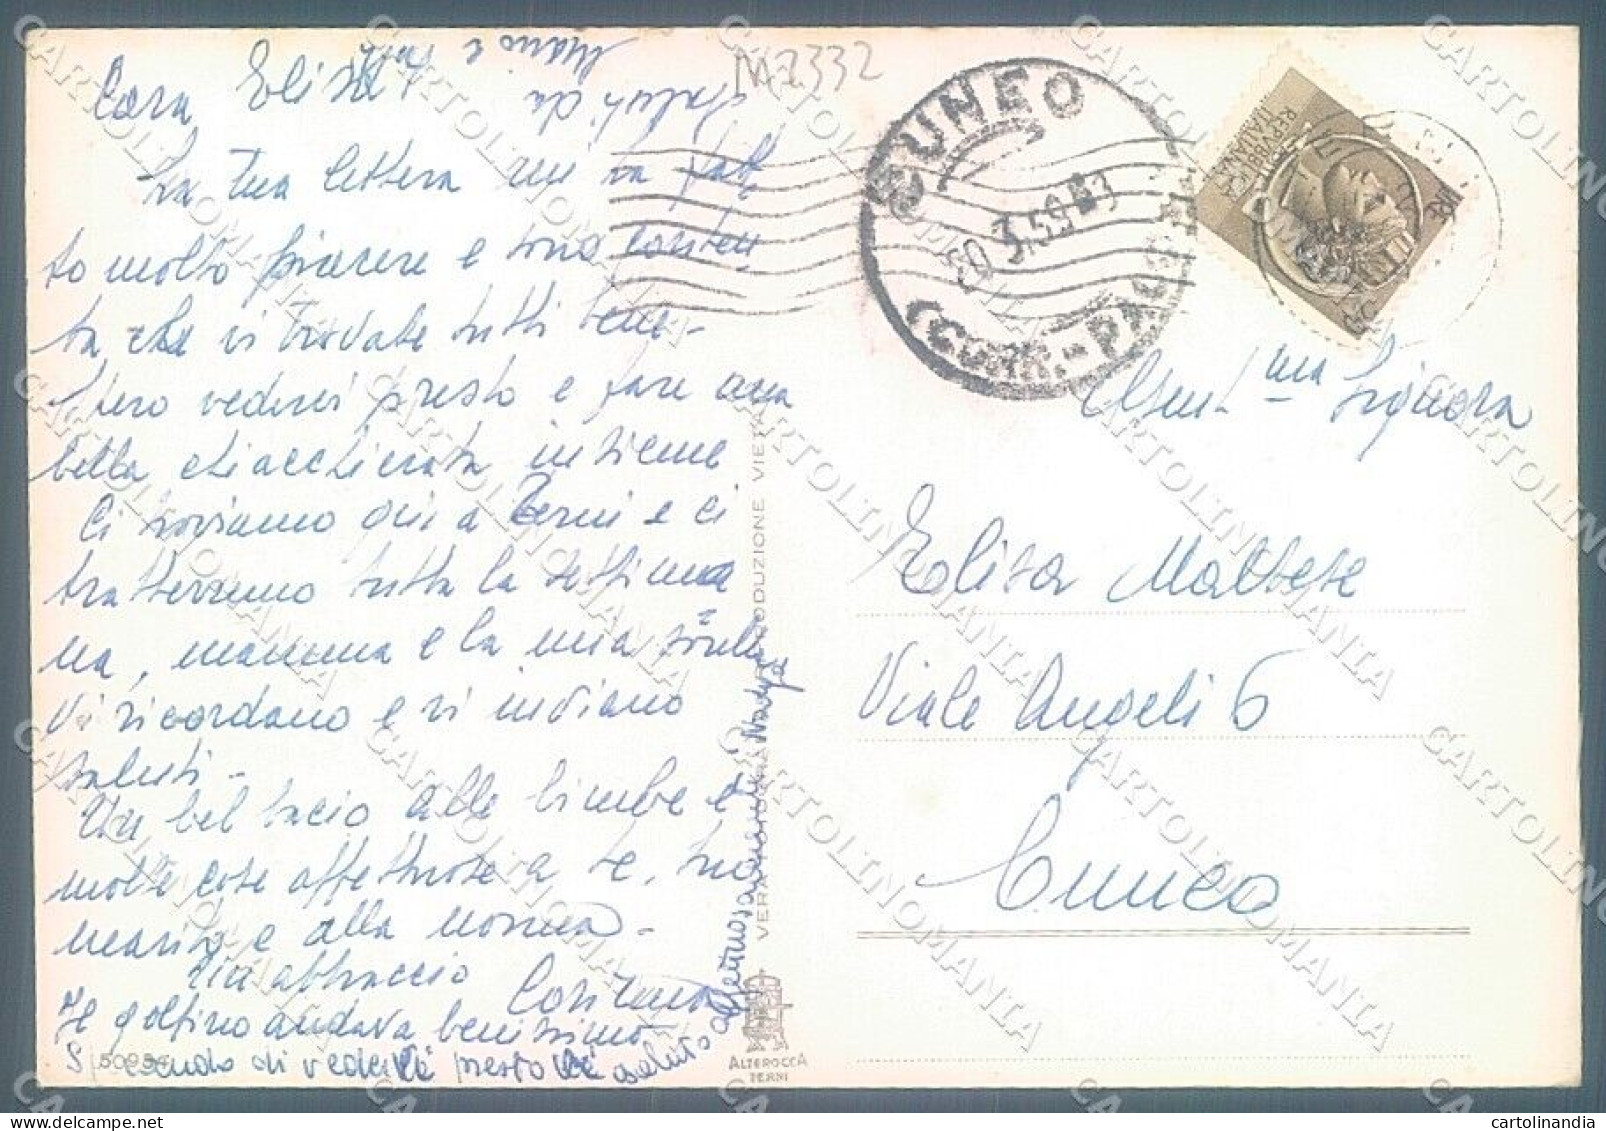 Cara Elisa
La tua lettera mi ha fatt
to molto piacere e sono conten
ta che vi troviate tutti bene -
Spero vederci presto e fare una
bella chiacchierata insieme
Ci troviamo qui a Terni e ci
tratterremo tutta la settima
na, mamma e la mia
Vi ricordano e vi inviano
saluti -
Un bel bacio alle bimbe e
molte cose affettuose a te, tuo
marito e alla nonna -
Un abbraccio
Il golfino andava benissimo
Sperando di vederVi presto
Saluti da
Mario e
M2332
CUNEO
20.3.59
(CORR.-PA
REPVBBLICA
ITALIANA
Signora
Elisa Maltese
Viale Angeli 6
Cuneo
VERA FOTOGRAFIA RIPRODUZIONE VIETATA
ALTEROCCA
TERNI
CARTOLINOMANIA
cartolinandia